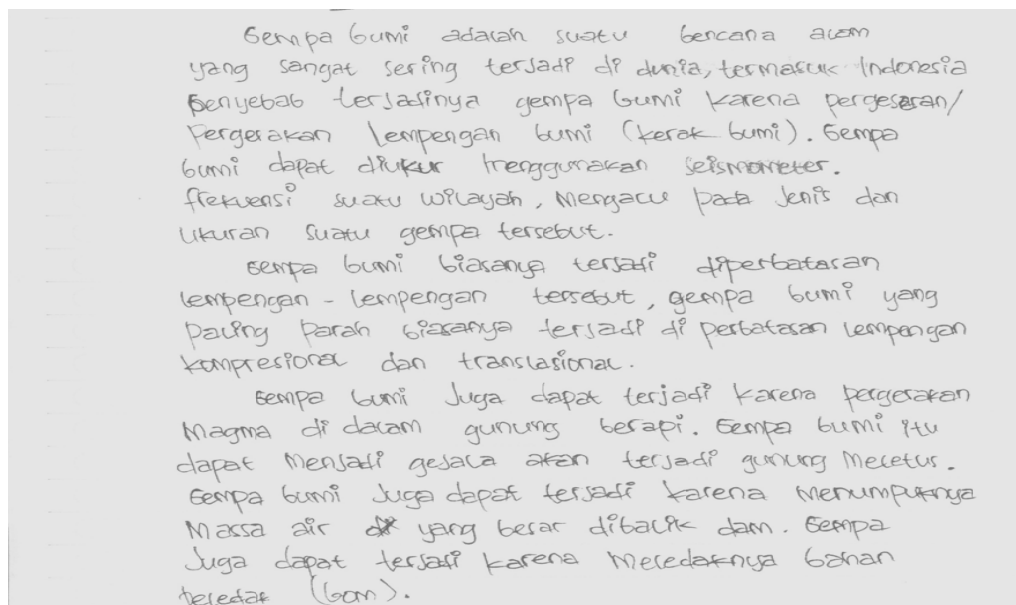 Gempa bumi adalah suatu bencana alam
yang sangat sering terjadi di dunia, termasuk Indonesia
Penyebab terjadinya gempa bumi karena pergeseran/
Pergerakan lempengan bumi (kerak bumi). Gempa
bumi dapat diukur menggunakan Seismometer.
frekuensi suatu wilayah, Mengacu pada Jenis dan
ukuran suatu gempa tersebut.
Gempa bumi biasanya terjadi diperbatasan
lempengan - lempengan tersebut, gempa bumi yang
paling parah biasanya terjadi di perbatasan lempengan
kompresional dan translasional.
Gempa bumi Juga dapat terjadi karena pergerakan
Magma di dalam gunung berapi. Gempa bumi itu
dapat Menjadi gejala akan terjadi gunung Meletus.
Gempa bumi Juga dapat terjadi karena Menumpuknya
Massa air yang besar dibalik dam. Gempa
Juga dapat terjadi karena Meledaknya bahan
peledak (bom).